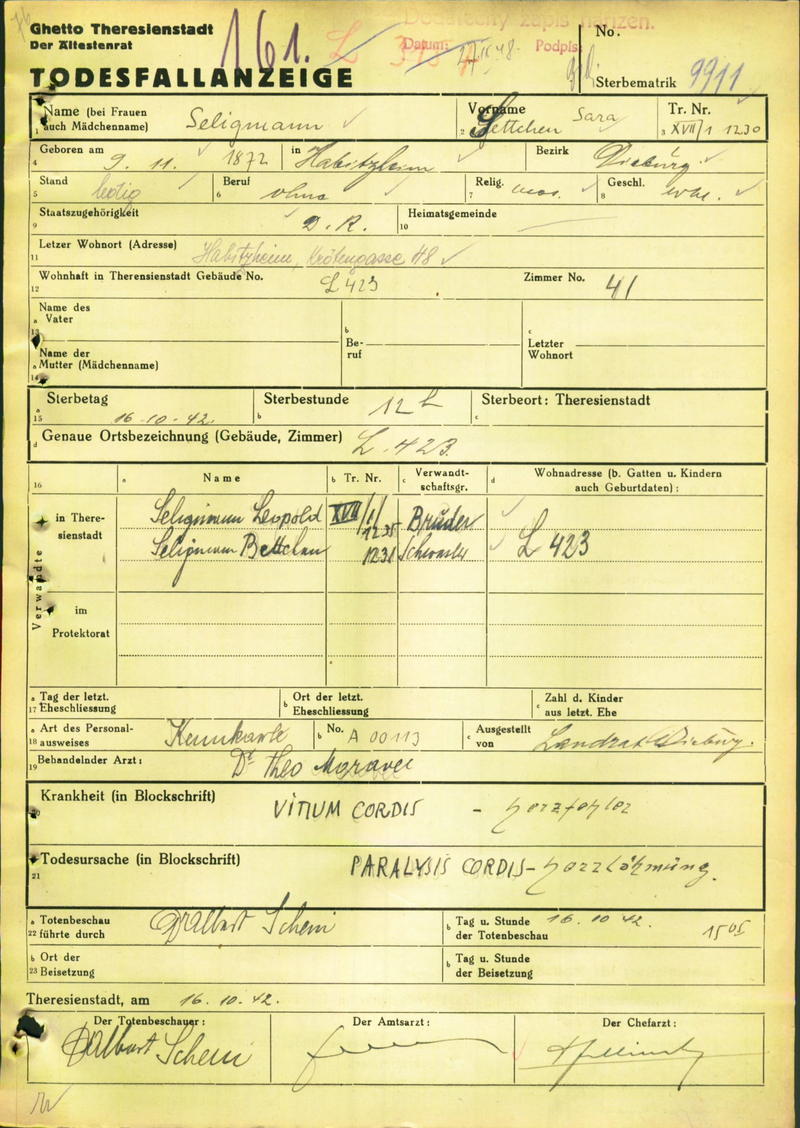 Ghetto Theresienstadt
Der Ältestenrat
161.
Dodatečný zápis nařízen.
Datum: Podpis:
No.
TODESFALLANZEIGE
Sterbematrik 9911
Name (bei Frauen auch Mädchenname) Seligmann
1
Vorname Settchen Sara
2
Tr. Nr.
3 XVII/1 1230
Geboren am 9. 11. 1872 in Habitzheim Bezirk Dieburg
4
Stand ledig Beruf ohne Relig. mos. Geschl. wbl.
5 6 7 8
Staatszugehörigkeit D. R. Heimatsgemeinde
9 10
Letzer Wohnort (Adresse) Habitzheim, Krötengasse 48
11
Wohnhaft in Theresienstadt Gebäude No. L 423 Zimmer No. 41
12
Name des Vater
a 13
b Beruf
c Letzter Wohnort
Name der Mutter (Mädchenname)
a 14
Sterbetag 16.10.42. Sterbestunde 12 h Sterbeort: Theresienstadt
a 15 b c
d Genaue Ortsbezeichnung (Gebäude, Zimmer) L 423
16 a Name b Tr. Nr. c Verwandtschaftsgr. d Wohnadresse (b. Gatten u. Kindern auch Geburtdaten):
Verwandte
in Theresienstadt
Seligmann Leopold XVII/1/ 1235 Bruder
Seligmann Bettchen 1231 Schwester L 423
im Protektorat
a Tag der letzt. b Ort der letzt. c Zahl d. Kinder
17 Eheschliessung Eheschliessung aus letzt. Ehe
a Art des Personalausweises Kennkarte b No. A 00113 c Ausgestellt von Landrat Dieburg.
18
19 Behandelnder Arzt: Dr Theo
Krankheit (in Blockschrift) VITIUM CORDIS - Herzfehler
20
Todesursache (in Blockschrift) PARALYSIS CORDIS - Herzlähmung.
21
a Totenbeschau b Tag u. Stunde 16.10.42. 15 05
22 führte durch Dr Albert der Totenbeschau
b Ort der b Tag u. Stunde
23 Beisetzung der Beisetzung
Theresienstadt, am 16.10.42.
Der Totenbeschauer: Der Amtsarzt: Der Chefarzt:
Dr Albert